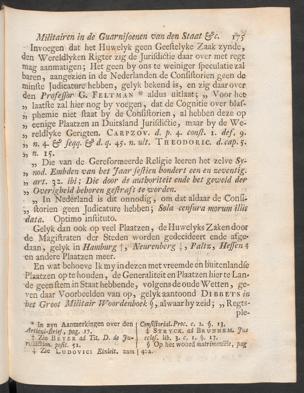 Militairen in de Guarnisoenen van den Staat &c. 175
Invoegen dat het Huwelyk geen Geestelyke Zaak zynde,
den Wereldlyken Rigter zig de Jurisdictie daar over met regt
mag aanmatigen; Het geen by ons te weiniger speculatie zal
baren, aangezien in de Nederlanden de Consistorien geen de
minste Judicature hebben, gelyk bekend is, en zig daar over
den Professor G. FELTMAN * aldus uitlaat; „ Voor het
„ laatste zal hier nog by voegen, dat de Cognitie over blas-
„ phemie niet staat by de Consistorien, al hebben deze op
„ eenige Plaatzen in Duitsland Jurisdictie, maar by de We-
„ reldlyke Gerigten. CARPZOV. d. p. 4. const. 1. def. 9.
„ n. 4. & seqq. & d. q. 45. n. ult. THEODORIC. d. cap. 5.
„ n. 15.
„ Die van de Gereformeerde Religie leeren het zelve Sy-
„ nod. Embden van het Jaar sestien hondert een en neventig.
„ art. 32. ibi: Die door de authoriteit ende het geweld der
„ Overigheid behoren gestraft te worden.
„ In Nederland is dit onnodig, om dat aldaar de Consi-
„ storien geen Judicature hebben; Sola censura morum illis
data. Optimo instituto.
Gelyk dan ook op veel Plaatzen, de Huwelyks Zaken door
de Magistraten der Steden worden gedecideert ende afge-
daan, gelyk in Hamburg †, Neurenberg ‡, Paltz, Hessen §
en andere Plaatzen meer.
En wat behoeve Ik my in dezen met vreemde en buitenlandse
Plaatzen op te houden, de Generaliteit en Plaatzen hier te Lan-
de geen stem in Staat hebbende, volgens de oude Wetten, ge-
ven daar Voorbeelden van op, gelyk aantoond DIBBETS in
het Groot Militair Woordenboek §, alwaar by zeid; „ Regts-
ple-
* In zyn Aanmerkingen over den
Articul-Brief, pag. 17.
† Zie BEYER ad Tit. D. de Ju-
risdiction. posit. 51.
‡ Zie LUDOVICI Einleit. zum
Consistorial-Proc. c. 2. §. 13.
§ STRYCK. ad BRUNNEM. Jus
eccles. lib. 3. c. 1. §. 17.
§ Op het woord matrimonie, pag
402.